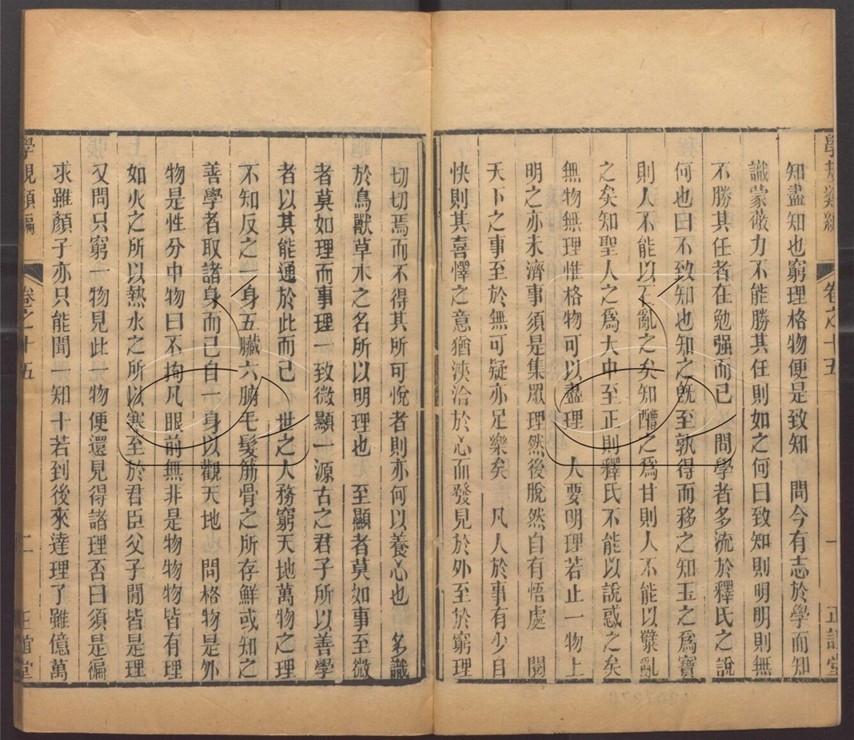 學規類編 卷之十五 一 正誼堂
知盡知也窮理格物便是致知　問今有志於學而知
識蒙蔽力不能勝其任則如之何曰致知則明明則無
不勝其任者在勉强而已　問學者多流於釋氏之說
何也曰不致知也知之旣至孰得而移之知玉之爲寶
則人不能以石亂之矣知醴之爲甘則人不能以糵亂
之矣知聖人之爲大中至正則釋氏不能以說惑之矣
無物無理惟格物可以盡理　人要明理若止一物上
明之亦未濟事須是集眾理然後脫然自有悟處　閱
天下之事至於無可疑亦足樂矣　凡人於事有少自
快則其喜懌之意猶浹洽於心而發見於外至於窮理
切切焉而不得其所可悅者則亦何以養心也　多識
於鳥獸草木之名所以明理也　至顯者莫如事至微
者莫如理而事理一致微顯一源古之君子所以善學
者以其能通於此而已　世之人務窮天地萬物之理
不知反之一身五臟六腑毛髮筋骨之所存鮮或知之
善學者取諸身而已自一身以觀天地　問格物是外
物是性分中物曰不拘凡眼前無非是物物物皆有理
如火之所以熱水之所以寒至於君臣父子閒皆是理
又問只窮一物見此一物便還見得諸理否曰須是徧
求雖顏子亦只能聞一知十若到後來達理了雖億萬
學規類編 卷之十五 二 正誼堂